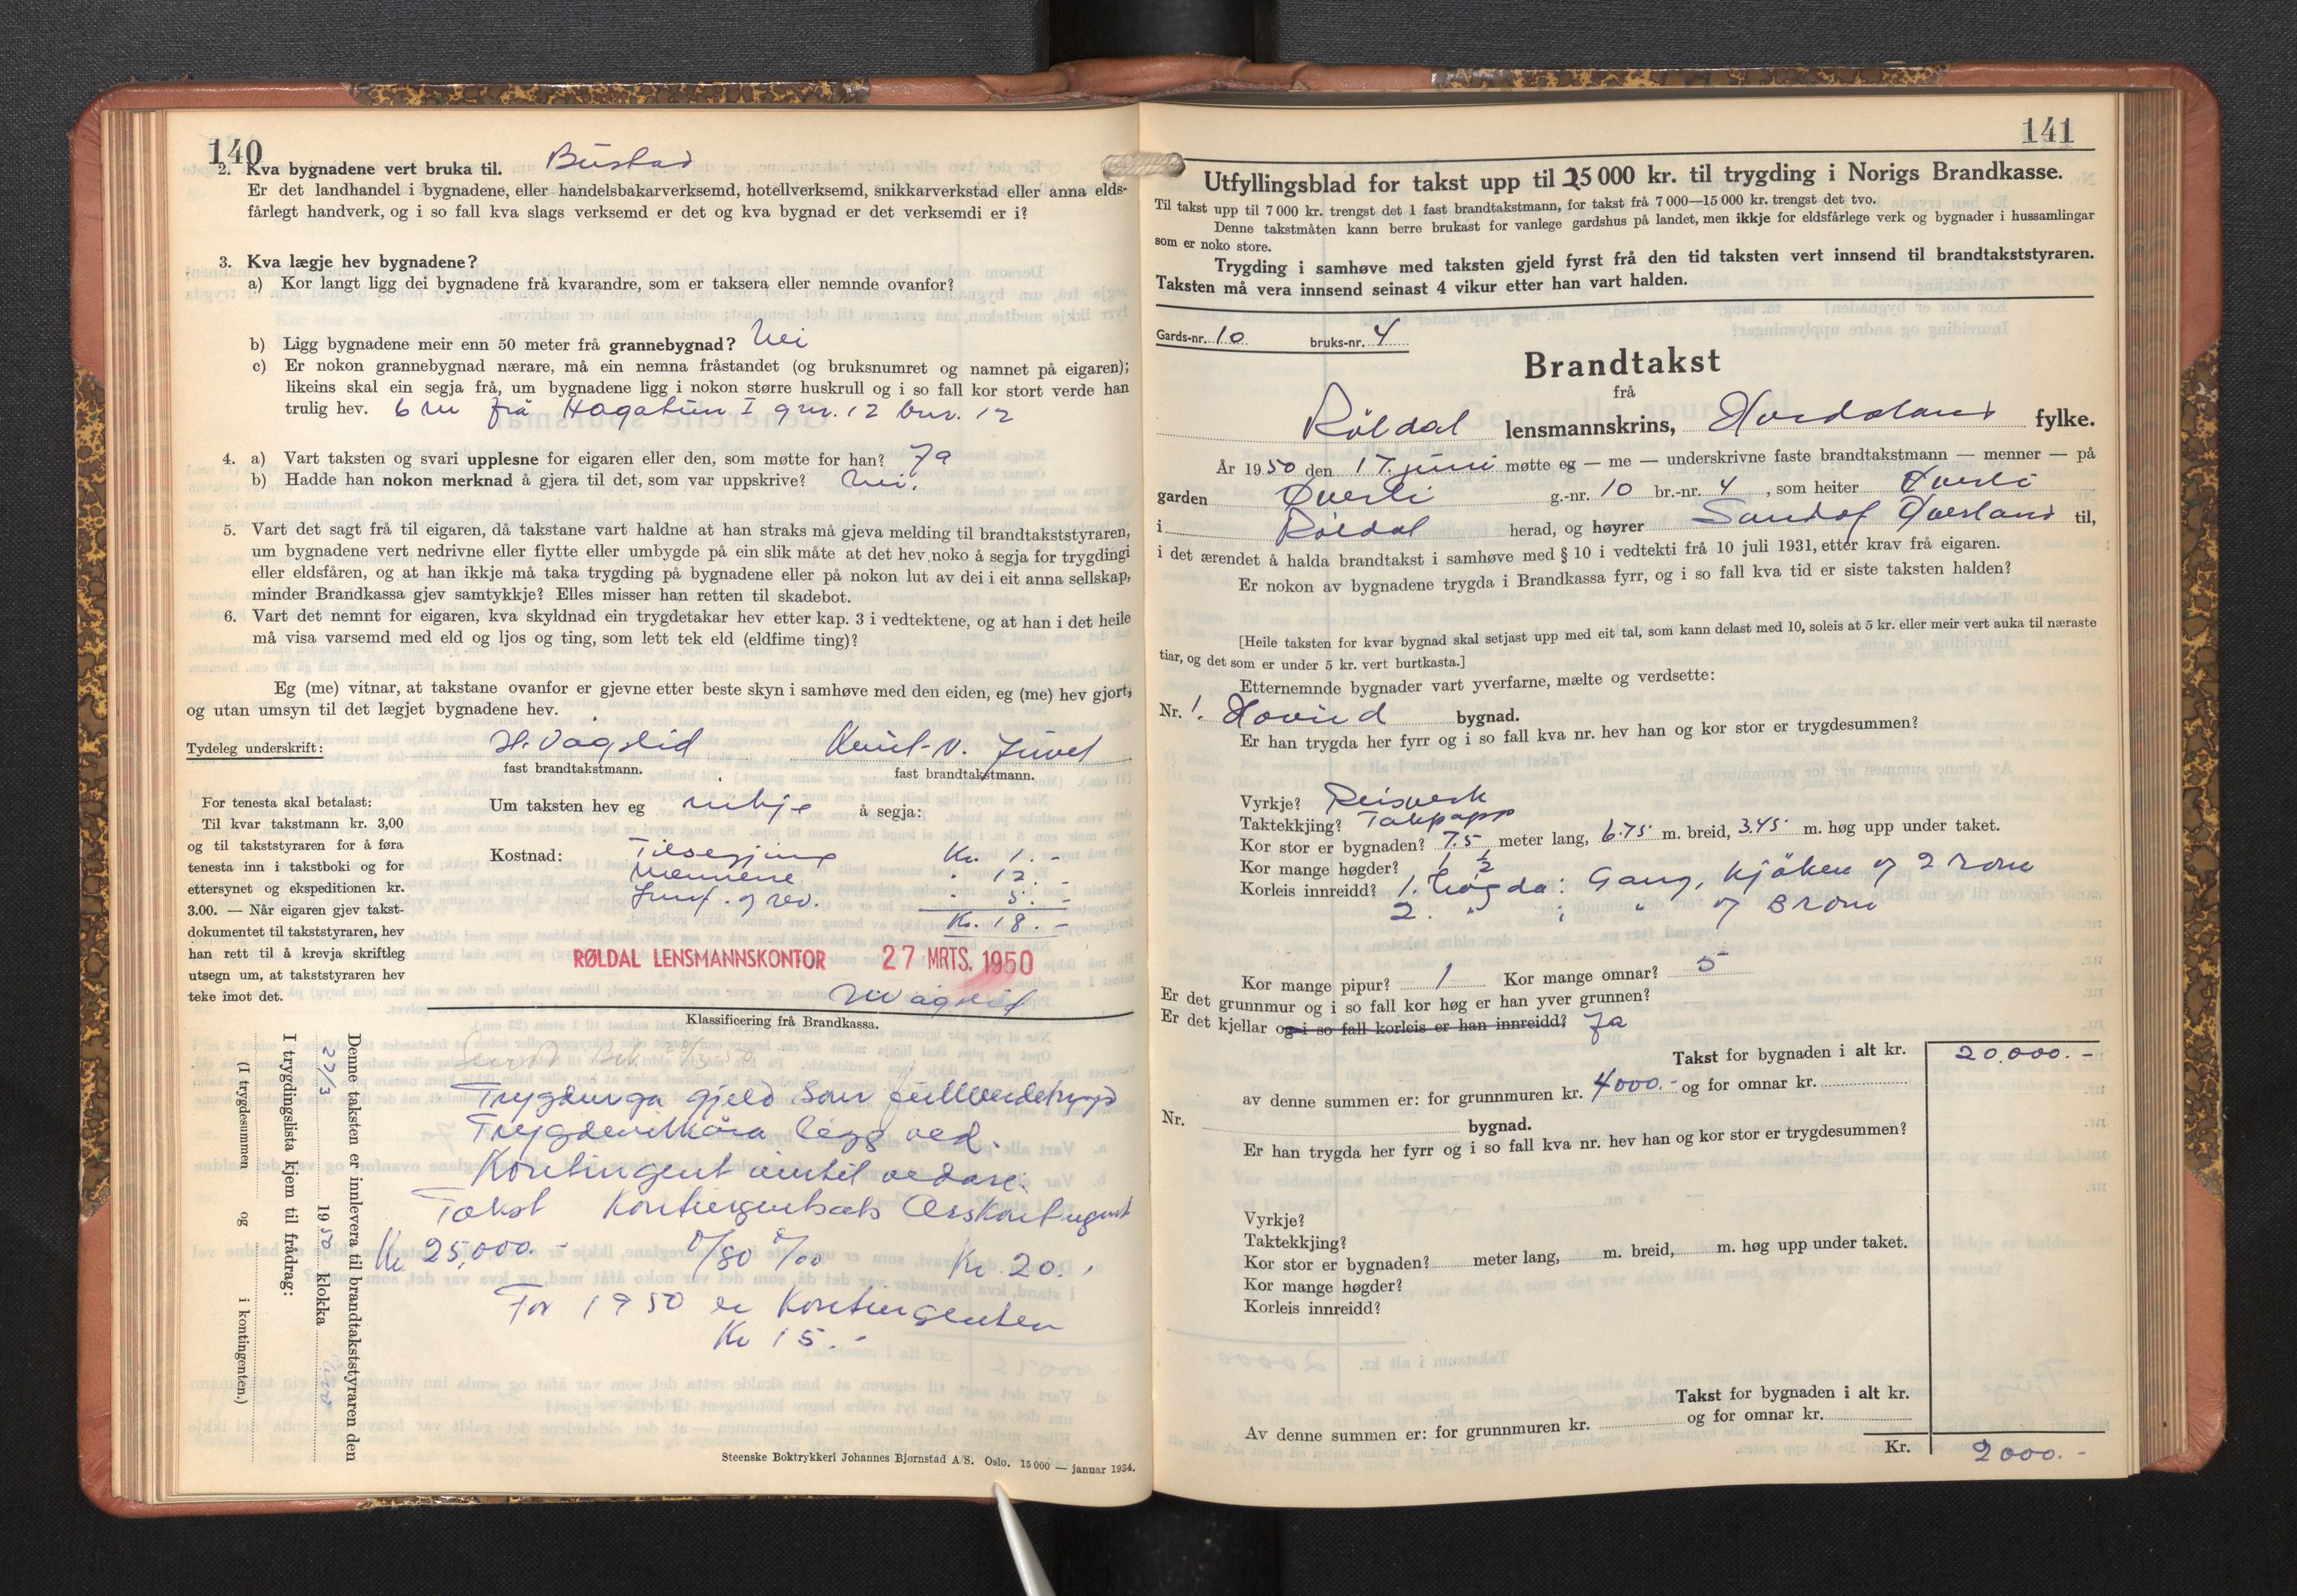 140
2. Kva bygnadene vert bruka til. Bustad
Er det landhandel i bygnadene, eller handelsbakarverksemd, hotellverksemd, snikkarverkstad eller anna elds-
fårlegt handverk, og i so fall kva slags verksemd er det og kva bygnad er det verksemdi er i?
3. Kva lægje hev bygnadene?
a) Kor langt ligg dei bygnadene frå kvarandre, som er taksera eller nemnde ovanfor?
b) Ligg bygnadene meir enn 50 meter frå grannebygnad? Nei
c) Er nokon grannebygnad nærare, må ein nemna fråstandet (og bruksnumret og namnet på eigaren);
likeins skal ein segja frå, um bygnadene ligg i nokon større huskrull og i so fall kor stort verde han
trulig hev. 6 m frå Hagatun I gnr. 12 bnr. 12
4. a) Vart taksten og svari upplesne for eigaren eller den, som møtte for han? Ja
b) Hadde han nokon merknad å gjera til det, som var uppskrive? Nei.
5. Vart det sagt frå til eigaren, då takstane vart haldne at han straks må gjeva melding til brandtakststyraren,
um bygnadene vert nedrivne eller flytte eller umbygde på ein slik måte at det hev noko å segja for trygdingi
eller eldsfåren, og at han ikkje må taka trygding på bygnadene eller på nokon lut av dei i eit anna sellskap,
minder Brandkassa gjev samtykkje? Elles misser han retten til skadebot.
6. Vart det nemnt for eigaren, kva skyldnad ein trygdetakar hev etter kap. 3 i vedtektene, og at han i det heile
må visa varsemd med eld og ljos og ting, som lett tek eld (eldfime ting)?
Eg (me) vitnar, at takstane ovanfor er gjevne etter beste skyn i samhøve med den eiden, eg (me) hev gjort,
og utan umsyn til det lægjet bygnadene hev.
Tydeleg underskrift: H. Vågslid Knut V. Juvet
fast brandtakstmann. fast brandtakstmann.
For tenesta skal betalast:
Til kvar takstmann kr. 3,00
og til takststyraren for å føra
tenesta inn i takstboki og for
ettersynet og ekspeditionen kr.
3.00. — Når eigaren gjev takst-
dokumentet til takststyraren, hev
han rett til å krevja skriftleg
utsegn um, at takststyraren hev
teke imot det.
Um taksten hev eg inkje å segja:
Kostnad: Tilsegjing Kr. 1.-
Mennene " 12.-
Innf. og rev. " 5.-
Kr. 18.-
RØLDAL LENSMANNSKONTOR 27 MRTS. 1950
Vågslid
Klassificering frå Brandkassa.
Trygdinga gjeld som fullverdetrygd
Trygdevilkåra legg ved.
Kontingent inntil vedare.
Takst Kontingentsats Årskontingent
Kr 25,000.- 0/80 0/00 Kr. 20.
For 1950 er kontingenten
Kr 15.-
Denne taksten er innlevera til brandtakststyraren den
27/3 1950 klokka
I trygdingslista kjem til frådrag:
(I trygdesummen og i kontingenten.)
Steenske Boktrykkeri Johannes Bjørnstad A/S. Oslo. 15 000 — januar 1934.
141
Utfyllingsblad for takst upp til 25 000 kr. til trygding i Norigs Brandkasse.
Til takst upp til 7 000 kr. trengst det 1 fast brandtakstmann, for takst frå 7 000—15 000 kr. trengst det tvo.
Denne takstmåten kann berre brukast for vanlege gardshus på landet, men ikkje for eldsfårlege verk og bygnader i hussamlingar
som er noko store.
Trygding i samhøve med taksten gjeld fyrst frå den tid taksten vert innsend til brandtakststyraren.
Taksten må vera innsend seinast 4 vikur etter han vart halden.
Gards-nr. 10 bruks-nr. 4
Brandtakst
frå
Røldal lensmannskrins, Hordaland fylke.
År 1950 den 17. juni møtte eg — me — underskrivne faste brandtakstmann — menner — på
garden Øverli g.-nr. 10 br.-nr. 4, som heiter Øverli
i Røldal herad, og høyrer Sandof Øverland til,
i det ærendet å halda brandtakst i samhøve med § 10 i vedtekti frå 10 juli 1931, etter krav frå eigaren.
Er nokon av bygnadene trygda i Brandkassa fyrr, og i so fall kva tid er siste taksten halden?
[Heile taksten for kvar bygnad skal setjast upp med eit tal, som kann delast med 10, soleis at 5 kr. eller meir vert auka til næraste
tiar, og det som er under 5 kr. vert burtkasta.]
Etternemnde bygnader vart yverfarne, mælte og verdsette:
Nr. 1. Hovud bygnad.
Er han trygda her fyrr og i so fall kva nr. hev han og kor stor er trygdesummen?
Vyrkje? Reisverk
Taktekkjing? Takpapp
Kor stor er bygnaden? 7.5 meter lang, 6.75 m. breid, 3.45 m. høg upp under taket.
Kor mange høgder? 1 1/2
Korleis innreidd? 1. høgda: Gang, kjøken og 2 rom
2. " : " og 3 rom
Kor mange pipur? 1 Kor mange omnar? 5
Er det grunnmur og i so fall kor høg er han yver grunnen?
Er det kjellar og i so fall korleis er han innreidd? Ja
Takst for bygnaden i alt kr. 20.000.-
av denne summen er: for grunnmuren kr. 4000.- og for omnar kr.
Nr. bygnad.
Er han trygda her fyrr og i so fall kva nr. hev han og kor stor er trygdesummen?
Vyrkje?
Taktekkjing?
Kor stor er bygnaden? meter lang, m. breid, m. høg upp under taket.
Kor mange høgder?
Korleis innreidd?
Takst for bygnaden i alt kr.
Av denne summen er: for grunnmuren kr. og for omnar kr.
Kr. 2000.-